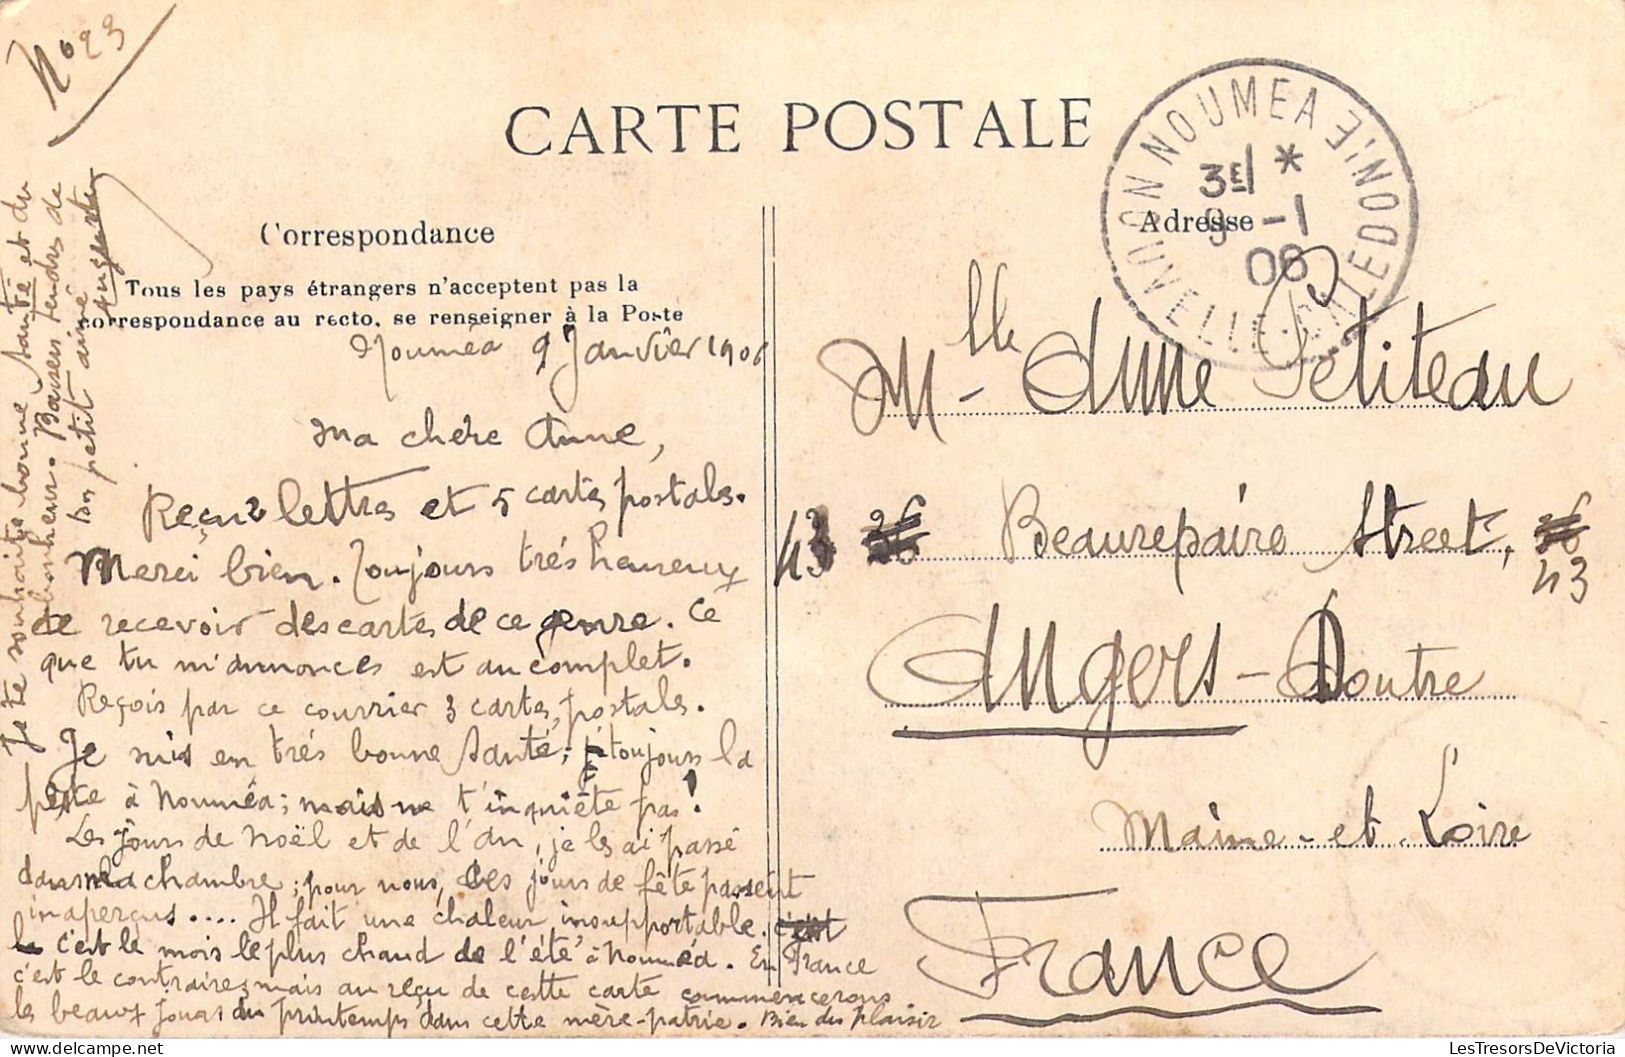 No 23
CARTE POSTALE
NOUMEA
NOUVELLE-CALEDONIE
3E *
9 -1
06
Correspondance
Adresse
Tous les pays étrangers n'acceptent pas la
correspondance au recto. se renseigner à la Poste
Nouméa 9 Janvier 1906
Ma chère Anne,
Reçu 2 lettres et 5 cartes postales.
Merci bien. Toujours très heureux
de recevoir des cartes de ce genre. Ce
que tu m'annonces est au complet.
Reçois par ce courrier 3 cartes postales.
Je suis en très bonne santé; toujours la
peste à Nouméa; mais ne t'inquiète pas!
Les jours de Noël et de l'an, je les ai passé
dans ma chambre; pour nous, les jours de fête passent
inaperçus.... Il fait une chaleur insupportable. c'est
c'est le mois le plus chaud de l'été à Nouméa. En France
c'est le contraire; mais au reçu de cette carte commencerons
les beaux jours du printemps dans cette mère-patrie. Bien du plaisir
Je te souhaite bonne santé et du
bonheur. Baisers tendres de
ton petit aimé
Mlle Anne Petiteau
43 36 Beaurepaire Street, 36
43
Angers-Doutre
Maine-et-Loire
France
LesTresorsDeVictoria